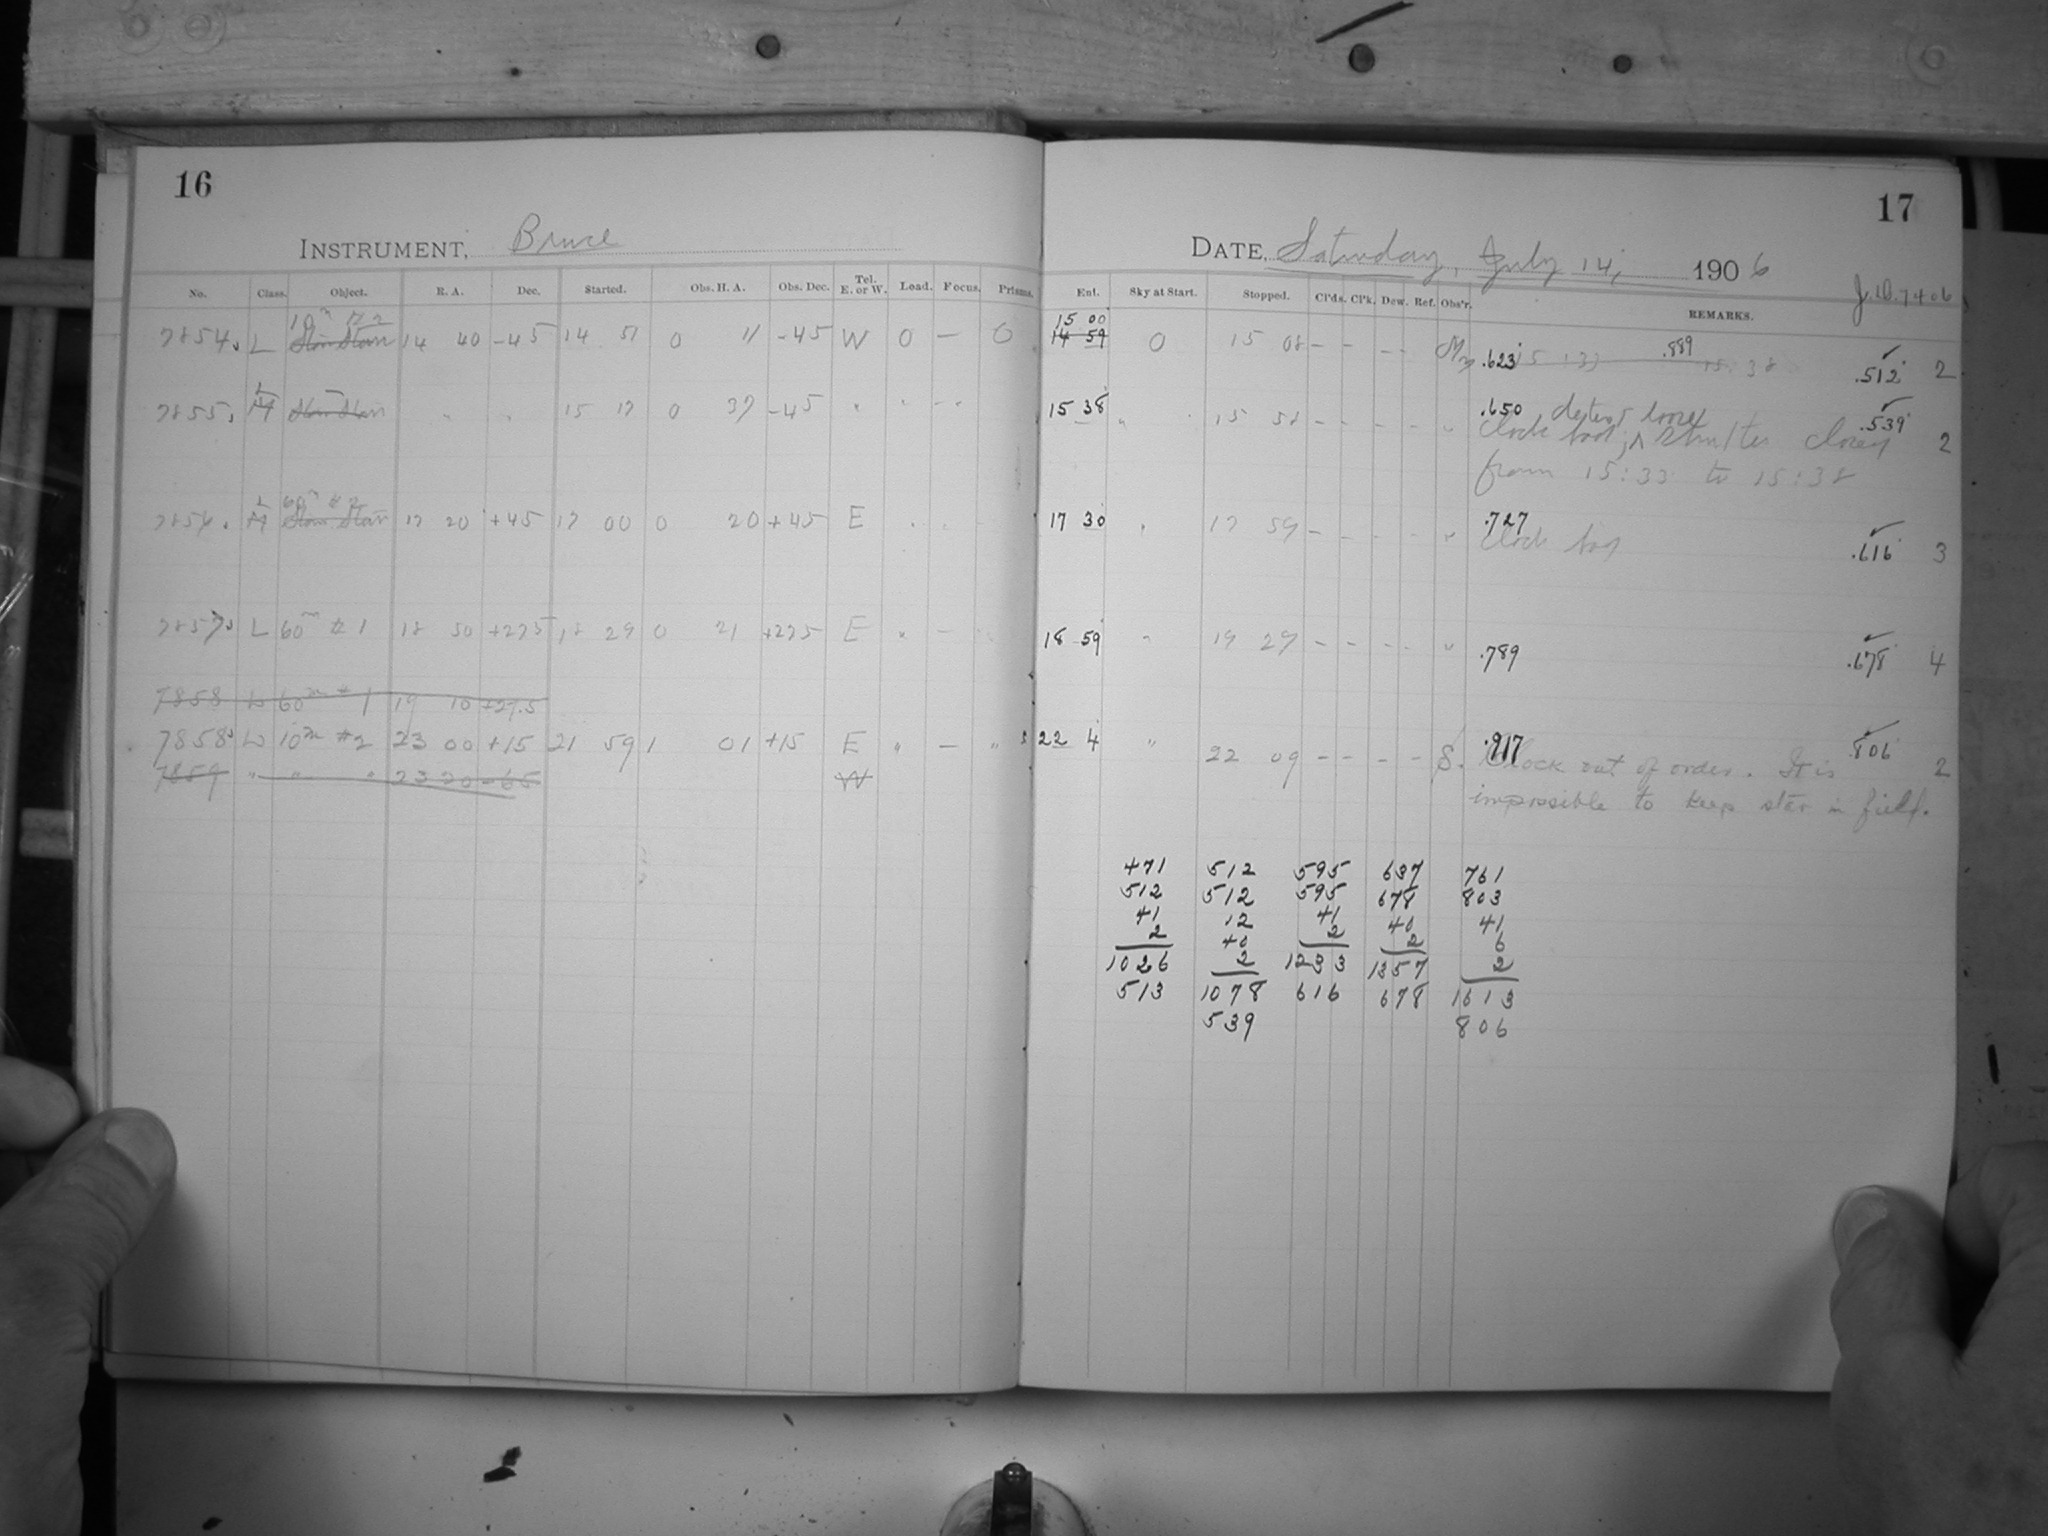 16
17
INSTRUMENT, Bruce
DATE, Saturday, July 14, 1906
J.D. 7406
No. Class. Object. R. A. Dec. Started. Obs. H. A. Obs. Dec. Tel. E. or W. Load. Focus. Prisms.
Ent. Sky at Start. Stopped. Cl'ds. Cl'k. Dew. Ref. Obs'r. REMARKS.
10m #2
15 00
7854. L 14 40 -45 14 51 0 11 -45 W 0 — 0 14 59 0 15 08 - - - - .623 .889 15:38 .512 2
L
7855. H " " 15 17 0 37 -45 " " - - 15 38 " 15 58 - - - - " .650 .539 2
Clock bad, shutter closed
from 15:33 to 15:38
L 60m #2
7856. H 17 20 +45 17 00 0 20 +45 E 17 30 " 17 59 - - - - " .727 .616 3
Clock bad
7857. L 60m #1 18 50 +275 18 29 0 21 +275 E " - " 18 59 " 19 29 - - - - " .789 .678 4
7858 L 60m #1 19 10 +27.5
7858. L 10m #2 23 00 +15 21 59 1 01 +15 E " — " 22 4 " 22 09 - - - - S. .917 .806 2
Clock out of order. It is
7859 " " " 23 20 -65 W
impossible to keep star in field.
471 512 595 637 761
512 512 595 678 803
41 12 41 40 41
2 40 2 2 6
1026 2 1233 1357 2
513 1078 616 678 1613
539 806